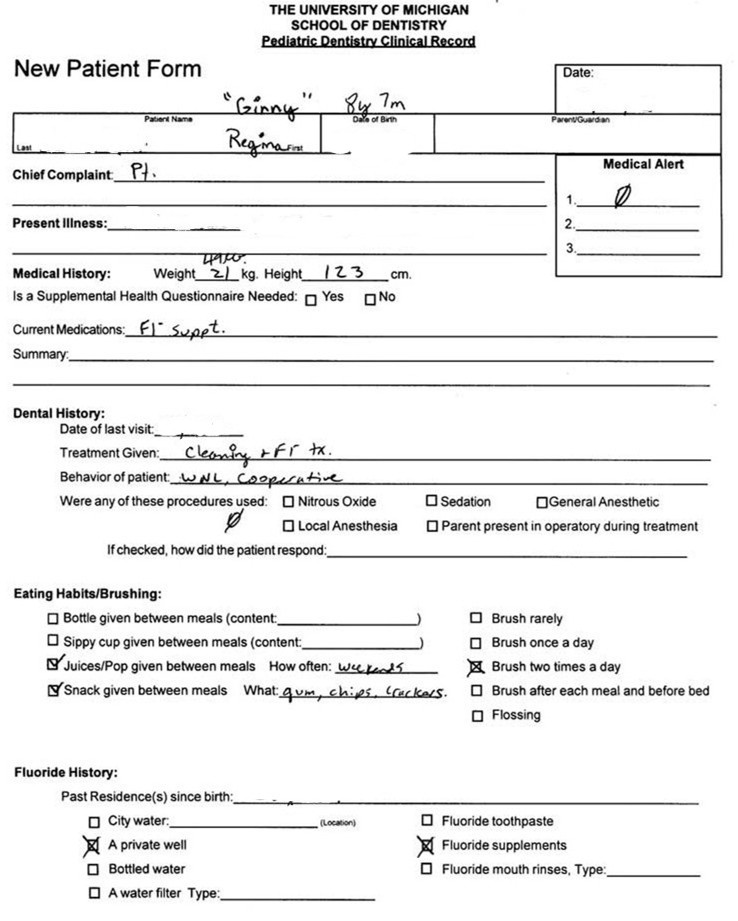 THE UNIVERSITY OF MICHIGAN
SCHOOL OF DENTISTRY
Pediatric Dentistry Clinical Record
New Patient Form
Date:
"Ginny" 8y 7m
Patient Name Date of Birth Parent/Guardian
Last Regina First
Medical Alert
Chief Complaint: Pt.
1. Ø
Present Illness:
2.
3.
Medical History: Weight 21 kg. Height 123 cm.
Is a Supplemental Health Questionnaire Needed: Yes No
Current Medications: Fl- suppt.
Summary:
Dental History:
Date of last visit:
Treatment Given: Cleaning + Fl- tx.
Behavior of patient: WNL, cooperative
Were any of these procedures used: Nitrous Oxide Sedation General Anesthetic
Ø Local Anesthesia Parent present in operatory during treatment
If checked, how did the patient respond:
Eating Habits/Brushing:
Bottle given between meals (content: ) Brush rarely
Sippy cup given between meals (content: ) Brush once a day
Juices/Pop given between meals How often: weekends Brush two times a day
Snack given between meals What: gum, chips, crackers. Brush after each meal and before bed
Flossing
Fluoride History:
Past Residence(s) since birth:
City water: (Location) Fluoride toothpaste
A private well Fluoride supplements
Bottled water Fluoride mouth rinses, Type:
A water filter Type: